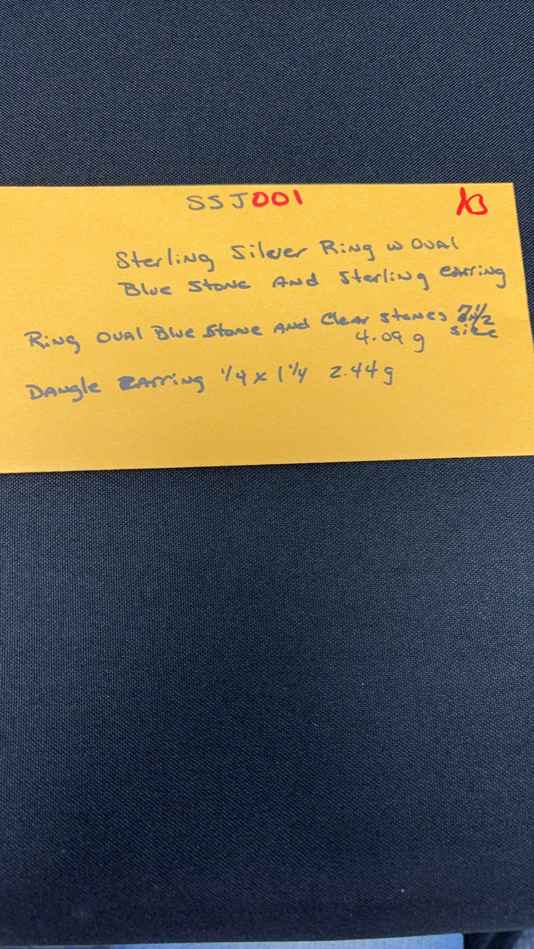 SSJ001
Sterling Silver Ring w Oval
Blue Stone And Sterling earring
Ring Oval Blue Stone And Clear stones 7 1/2
4.09 g size
Dangle Earring 1/4 x 1 1/4 2.44g